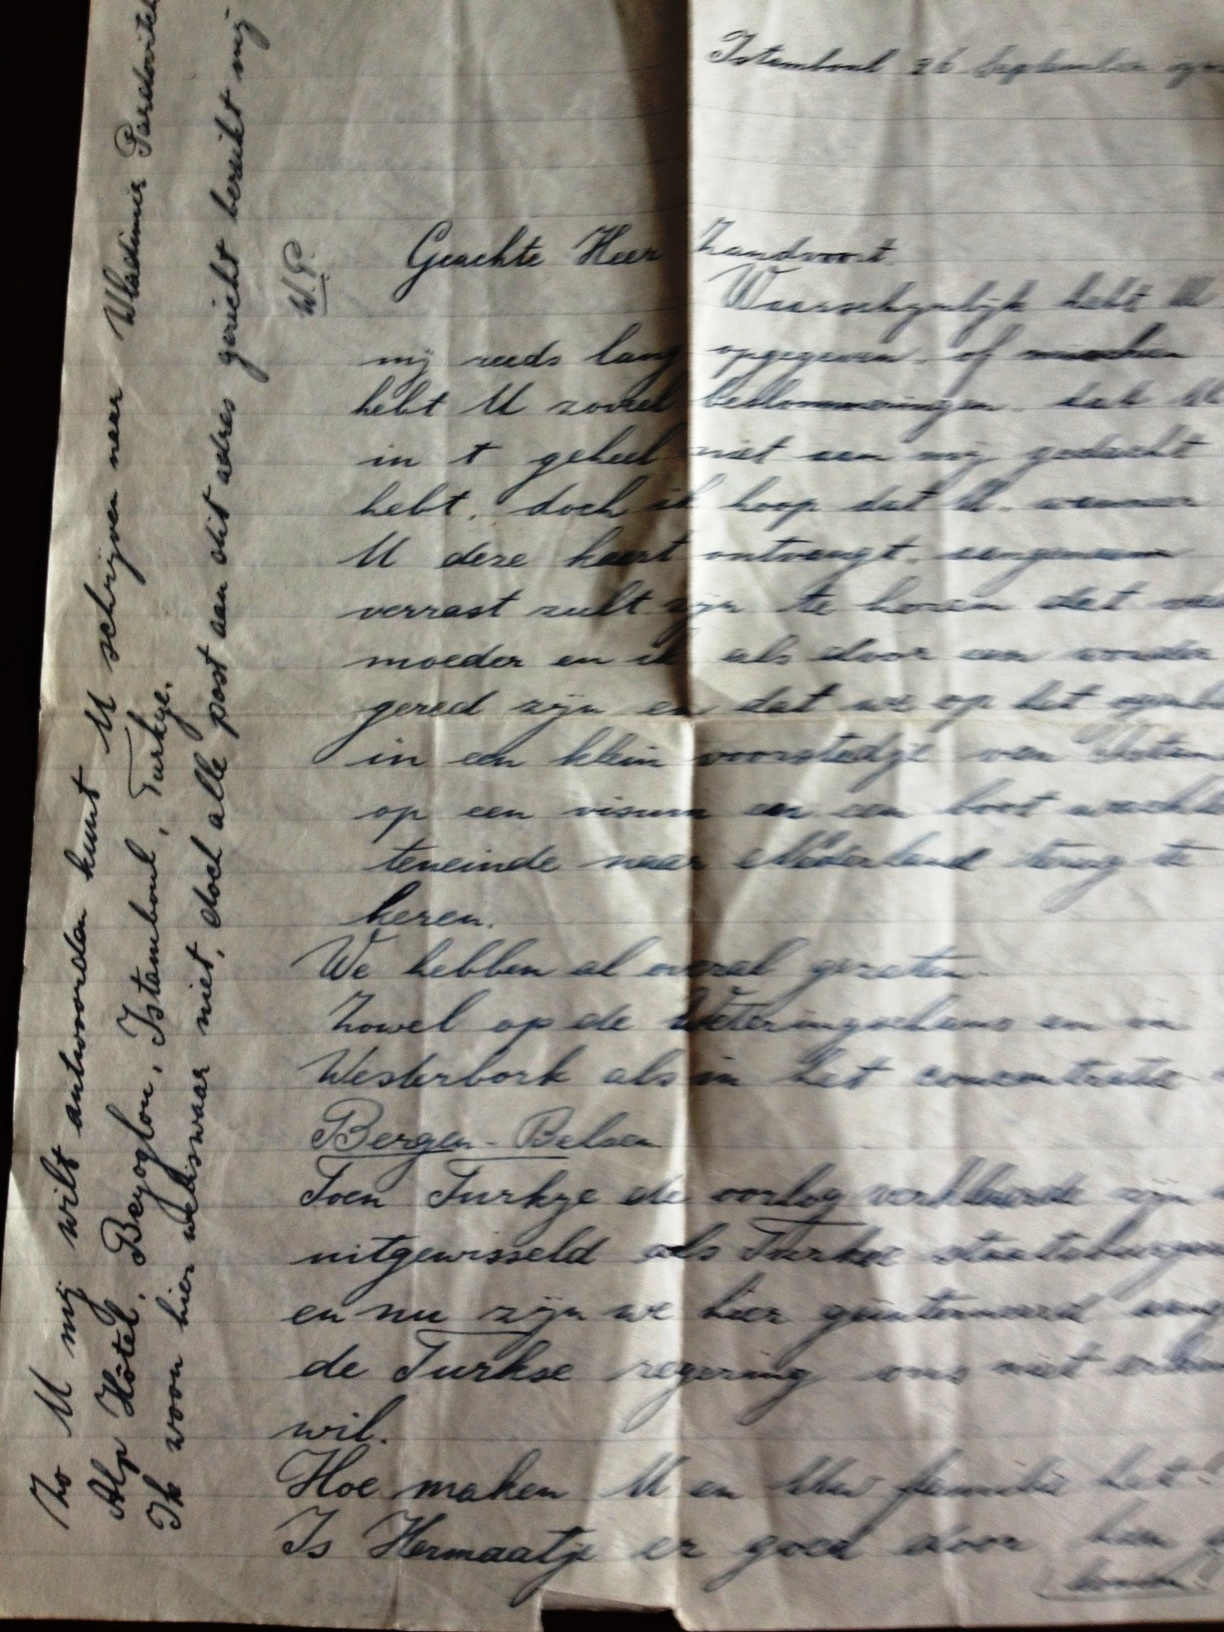 Istamboul 26 September
Geachte Heer Zandvoort.
Waarschynlyk hebt U
mij reeds lang opgegeven. of misschien
hebt U zoveel beslommeringen. dat U
in t geheel niet aan mij gedacht
hebt. doch ik hoop dat U. wanneer
U deze kaart ontvangt. aangenaam
verrast zult zijn te horen dat
moeder en ik als door een wonder
gered zijn en dat we op het
in een klein voorstadje van
op een visum en een boot
teneinde naar Nederland terug te
keren.
We hebben al overal gezeten.
Zowel op de Weteringschans en in
Westerbork als in het concentratie
Bergen-Belsen
Toen Turkye de oorlog verklaarde zijn
uitgewisseld als Turkse
en nu zijn we hier geinterneerd
de Turkse regering ons niet
wil.
Hoe maken U en Uw familie het?
Is Hermaatje er goed door
Zo U mij wilt antwoorden kunt U schrijven naar Vladimir
Alp Hôtel. Beyoglou, Istamboul, Turkye.
Ik woon hier weliswaar niet, doch alle post aan dit adres gericht bereikt mij
W.P.